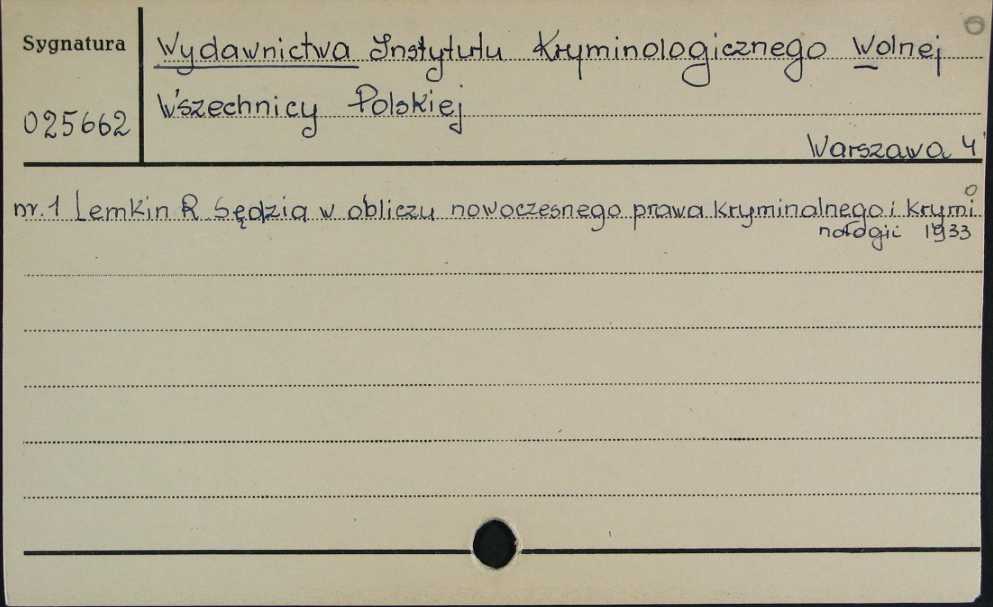 Sygnatura
Wydawnictwa Instytutu Kryminologicznego Wolnej
Wszechnicy Polskiej
025662
Warszawa 4'
nr. 1 Lemkin R Sędzia w obliczu nowoczesnego prawa kryminalnego i krymi
nologii 1933